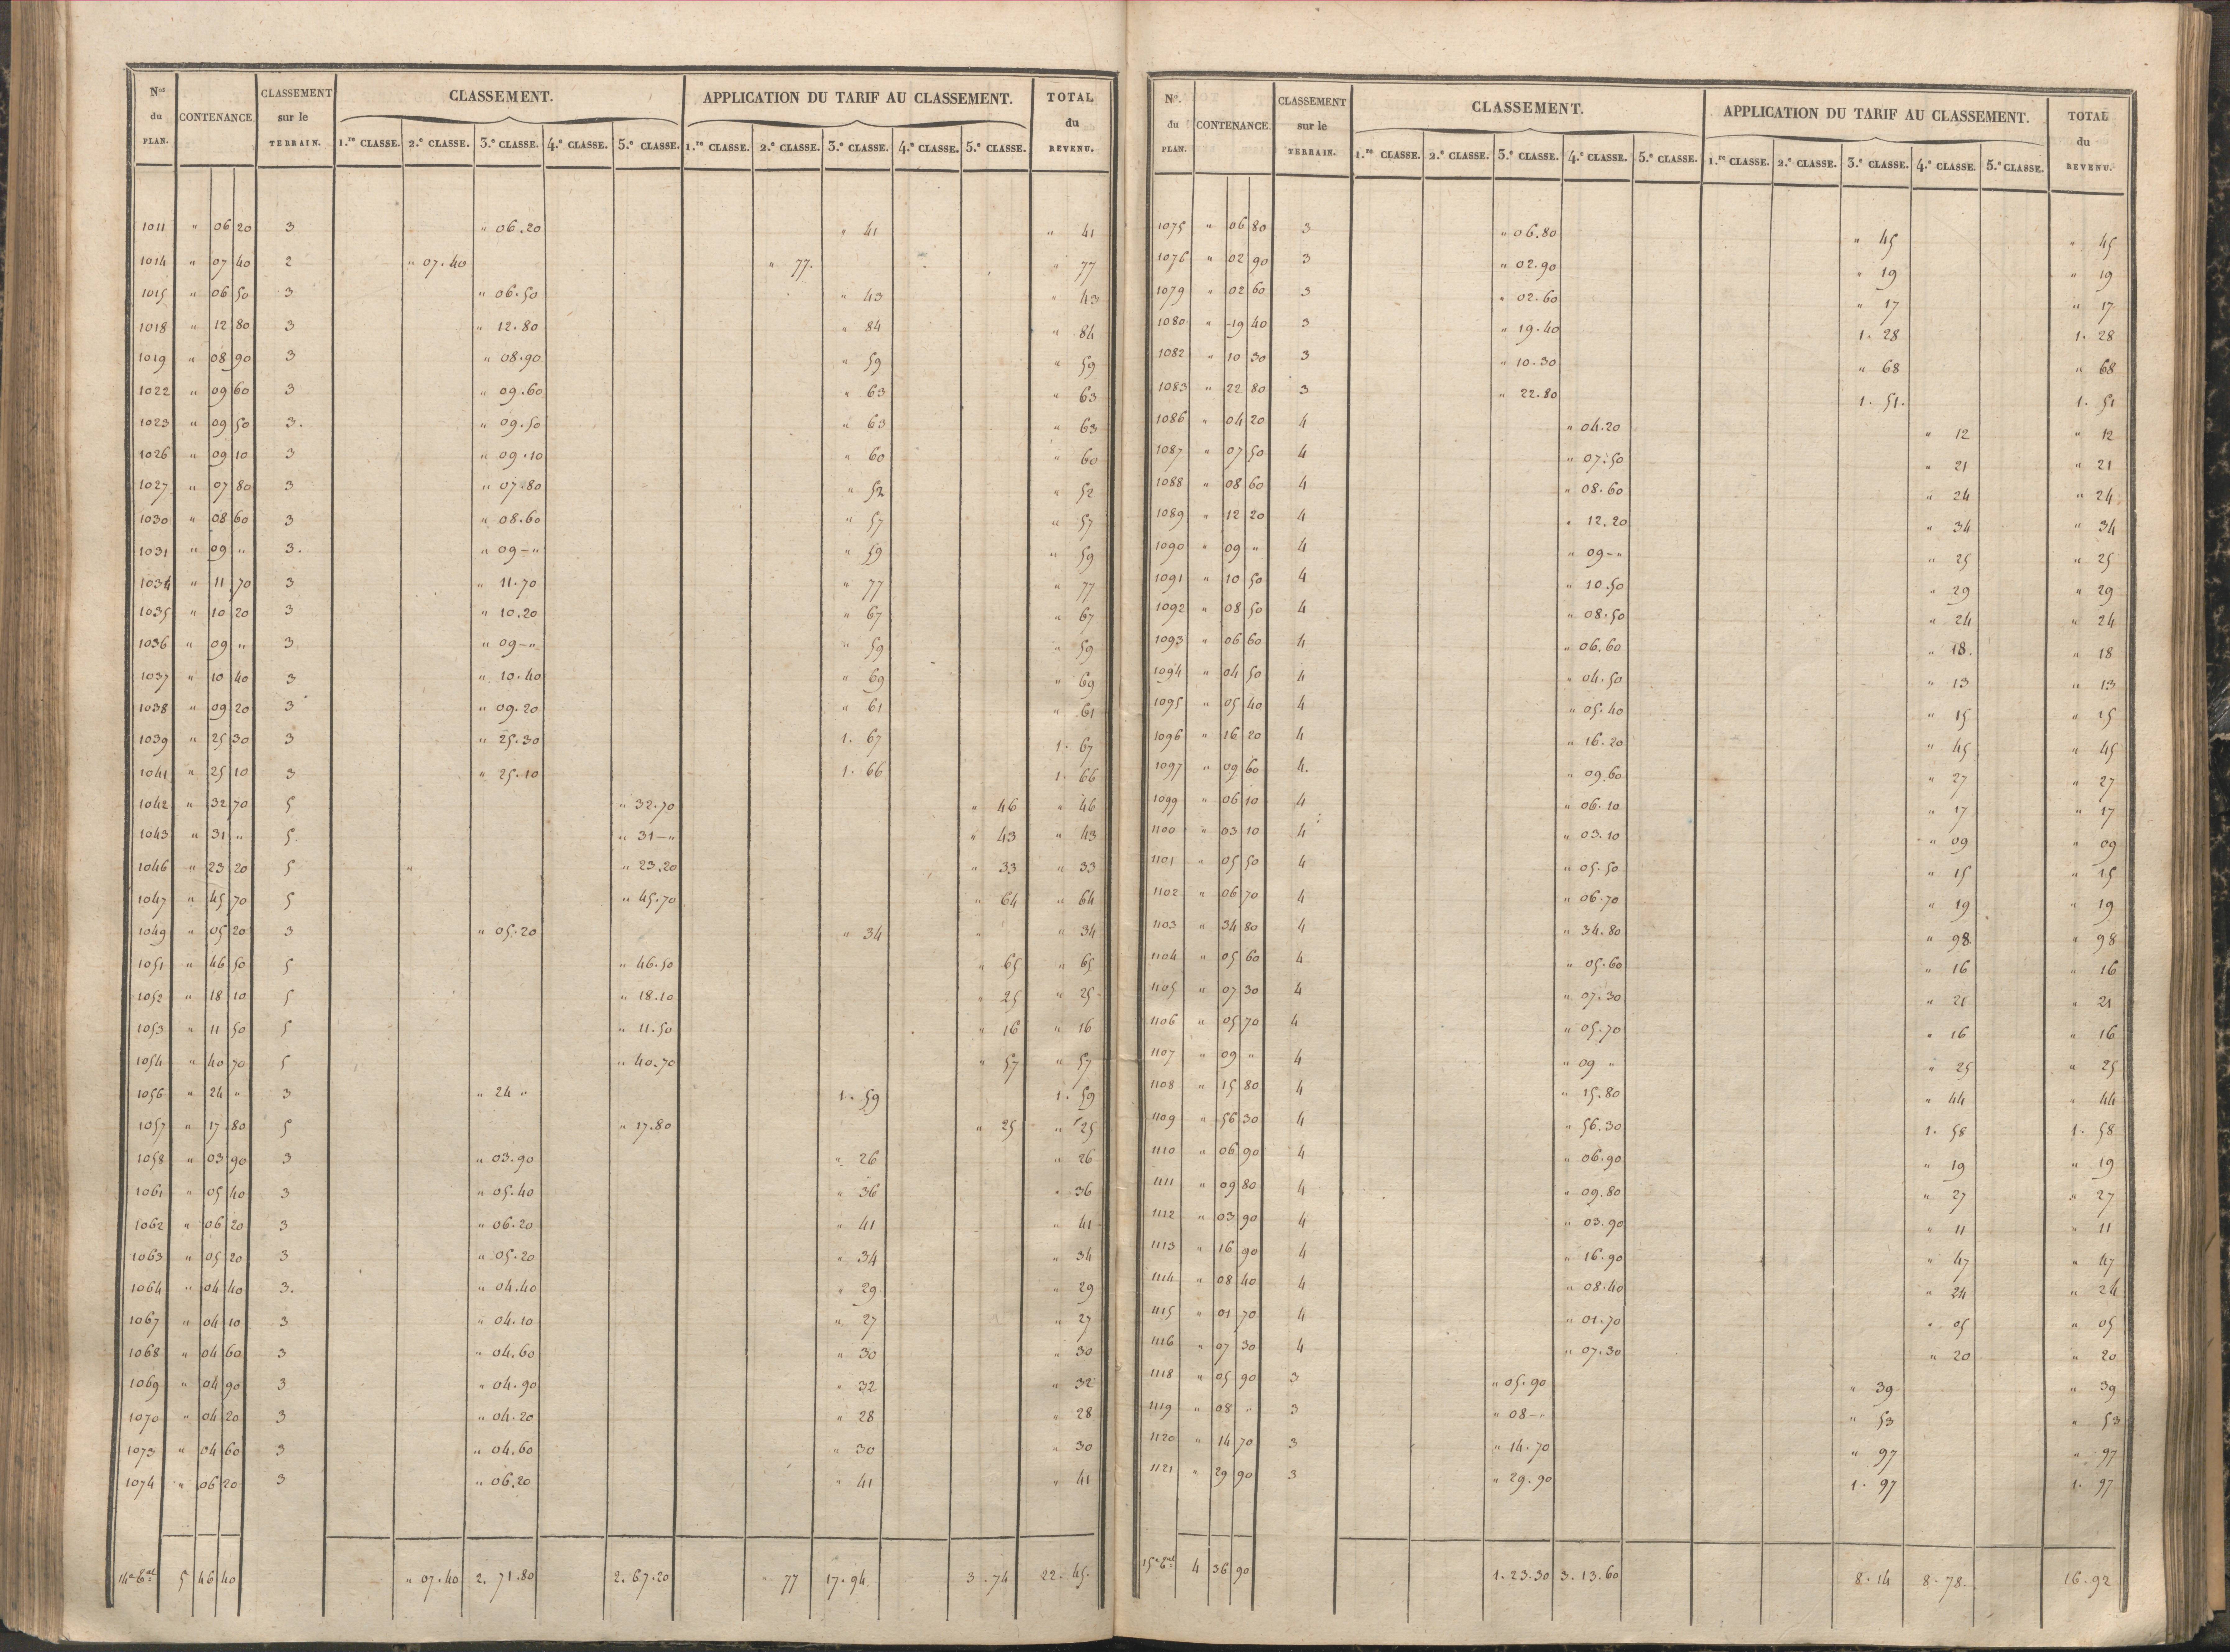 Nos du PLAN. CONTENANCE. CLASSEMENT sur le TERRAIN. CLASSEMENT. APPLICATION DU TARIF AU CLASSEMENT. TOTAL du REVENU.
1.re CLASSE. 2.e CLASSE. 3.e CLASSE. 4.e CLASSE. 5.e CLASSE. 1.re CLASSE. 2.e CLASSE. 3.e CLASSE. 4.e CLASSE. 5.e CLASSE.
1011 " 06 20 3 " 06.20 " 41 " 41
1014 " 07 40 2 " 07.40 " 77. " 77
1015 " 06 50 3 " 06.50 " 43 " 43
1018 " 12 80 3 " 12.80 " 84 " 84
1019 " 08 90 3 " 08.90 " 59 " 59
1022 " 09 60 3 " 09.60 " 63 " 63
1023 " 09 50 3. " 09.50 " 63 " 63
1026 " 09 10 3 " 09.10 " 60 " 60
1027 " 07 80 3 " 07.80 " 52 " 52
1030 " 08 60 3 " 08.60 " 57 " 57
1031 " 09 " 3. " 09-" " 59 " 59
1034 " 11 70 3 " 11.70 " 77 " 77
1035 " 10 20 3 " 10.20 " 67 " 67
1036 " 09 " 3 " 09-" " 59 " 59
1037 " 10 40 3 " 10.40 " 69 " 69
1038 " 09 20 3 " 09.20 " 61 " 61
1039 " 25 30 3 " 25.30 1. 67 1. 67
1041 " 25 10 3 " 25.10 1. 66 1. 66
1042 " 32 70 5 " 32.70 " 46 " 46
1043 " 31 " 5. " 31-" " 43 " 43
1046 " 23 20 5 " " 23.20 " 33 " 33
1047 " 45 70 5 " 45.70 " 64 " 64
1049 " 05 20 3 " 05.20 " 34 " " 34
1051 " 46 50 5 " 46.50 " 65 " 65
1052 " 18 10 5 " 18.10 " 25 " 25
1053 " 11 50 5 " 11.50 " 16 " 16
1054 " 40 70 5 " 40.70 " 57 " 57
1056 " 24 " 3 " 24 " 1. 59 1. 59
1057 " 17 80 5 " 17.80 " 25 " 25
1058 " 03 90 3 " 03.90 " 26 " 26
1061 " 05 40 3 " 05.40 " 36 " 36
1062 " 06 20 3 " 06.20 " 41 " 41
1063 " 05 20 3 " 05.20 " 34 " 34
1064 " 04 40 3. " 04.40 " 29 " 29
1067 " 04 10 3 " 04.10 " 27 " 27
1068 " 04 60 3 " 04.60 " 30 " 30
1069 " 04 90 3 " 04.90 " 32 " 32
1070 " 04 20 3 " 04.20 " 28 " 28
1073 " 04 60 3 " 04.60 " 30 " 30
1074 " 06 20 3 " 06.20 " 41 " 41
5 46 40 " 07.40 2. 71.80 2. 67.20 " 77 17.94 3.74 22.45.
No. du PLAN. CONTENANCE. CLASSEMENT sur le TERRAIN. CLASSEMENT. APPLICATION DU TARIF AU CLASSEMENT. TOTAL du REVENU.
1.re CLASSE. 2.e CLASSE. 3.e CLASSE. 4.e CLASSE. 5.e CLASSE. 1.re CLASSE. 2.e CLASSE. 3.e CLASSE. 4.e CLASSE. 5.e CLASSE.
1075 " 06 80 3 " 06.80 " 45 " 45
1076 " 02 90 3 " 02.90 " 19 " 19
1079 " 02 60 3 " 02.60 " 17 " 17
1080 " 19 40 3 " 19.40 1. 28 1. 28
1082 " 10 30 3 " 10.30 " 68 " 68
1083 " 22 80 3 " 22.80 1. 51. 1. 51
1086 " 04 20 4 " 04.20 " 12 " 12
1087 " 07 50 4 " 07.50 " 21 " 21
1088 " 08 60 4 " 08.60 " 24 " 24
1089 " 12 20 4 " 12.20 " 34 " 34
1090 " 09 " 4 " 09-" " 25 " 25
1091 " 10 50 4 " 10.50 " 29 " 29
1092 " 08 50 4 " 08.50 " 24 " 24
1093 " 06 60 4 " 06.60 " 18. " 18
1094 " 04 50 4 " 04.50 " 13 " 13
1095 " 05 40 4 " 05.40 " 15 " 15
1096 " 16 20 4 " 16.20 " 45 " 45
1097 " 09 60 4. " 09.60 " 27 " 27
1099 " 06 10 4 " 06.10 " 17 " 17
1100 " 03 10 4 " 03.10 " 09 " 09
1101 " 05 50 4 " 05.50 " 15 " 15
1102 " 06 70 4 " 06.70 " 19 " 19
1103 " 34 80 4 " 34.80 " 98 " 98
1104 " 05 60 4 " 05.60 " 16 " 16
1105 " 07 30 4 " 07.30 " 21 " 21
1106 " 05 70 4 " 05.70 " 16 " 16
1107 " 09 " 4 " 09 " " 25 " 25
1108 " 15 80 4 " 15.80 " 44 " 44
1109 " 56 30 4 " 56.30 1. 58 1. 58
1110 " 06 90 4 " 06.90 " 19 " 19
1111 " 09 80 4 " 09.80 " 27 " 27
1112 " 03 90 4 " 03.90 " 11 " 11
1113 " 16 90 4 " 16.90 " 47 " 47
1114 " 08 40 4 " 08.40 " 24 " 24
1115 " 01 70 4 " 01.70 " 05 " 05
1116 " 07 30 4 " 07.30 " 20 " 20
1118 " 05 90 3 " 05.90 " 39 " 39
1119 " 08 " 3 " 08-" " 53 " 53
1120 " 14 70 3 " 14.70 " 97 " 97
1121 " 29 90 3 " 29.90 1. 97 1. 97
4 36 90 1.23.30 3.13.60 8.14 8.78. 16.92